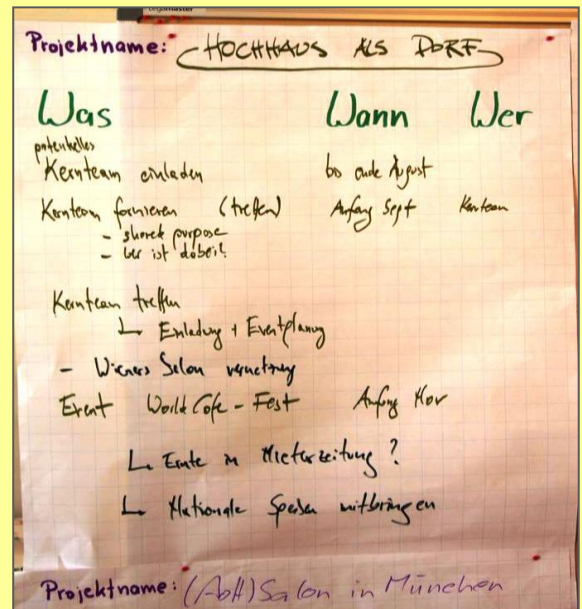 Legamaster
Projektname: HOCHHAUS ALS DORF
Was Wann Wer
potentielles
Kernteam einladen bis ende August
Kernteam formieren (treffen) Anfang Sept Kernteam
- shared purpose
- wer ist dabei?
Kernteam treffen
↳ Einladung + Eventplanung
- Wieners Salon vernetzung
Event World Cafe - Fest Anfang Nov
↳ Ernte in Mieterzeitung?
↳ Nationale Speisen mitbringen
Projektname: (AoH) Salon in München